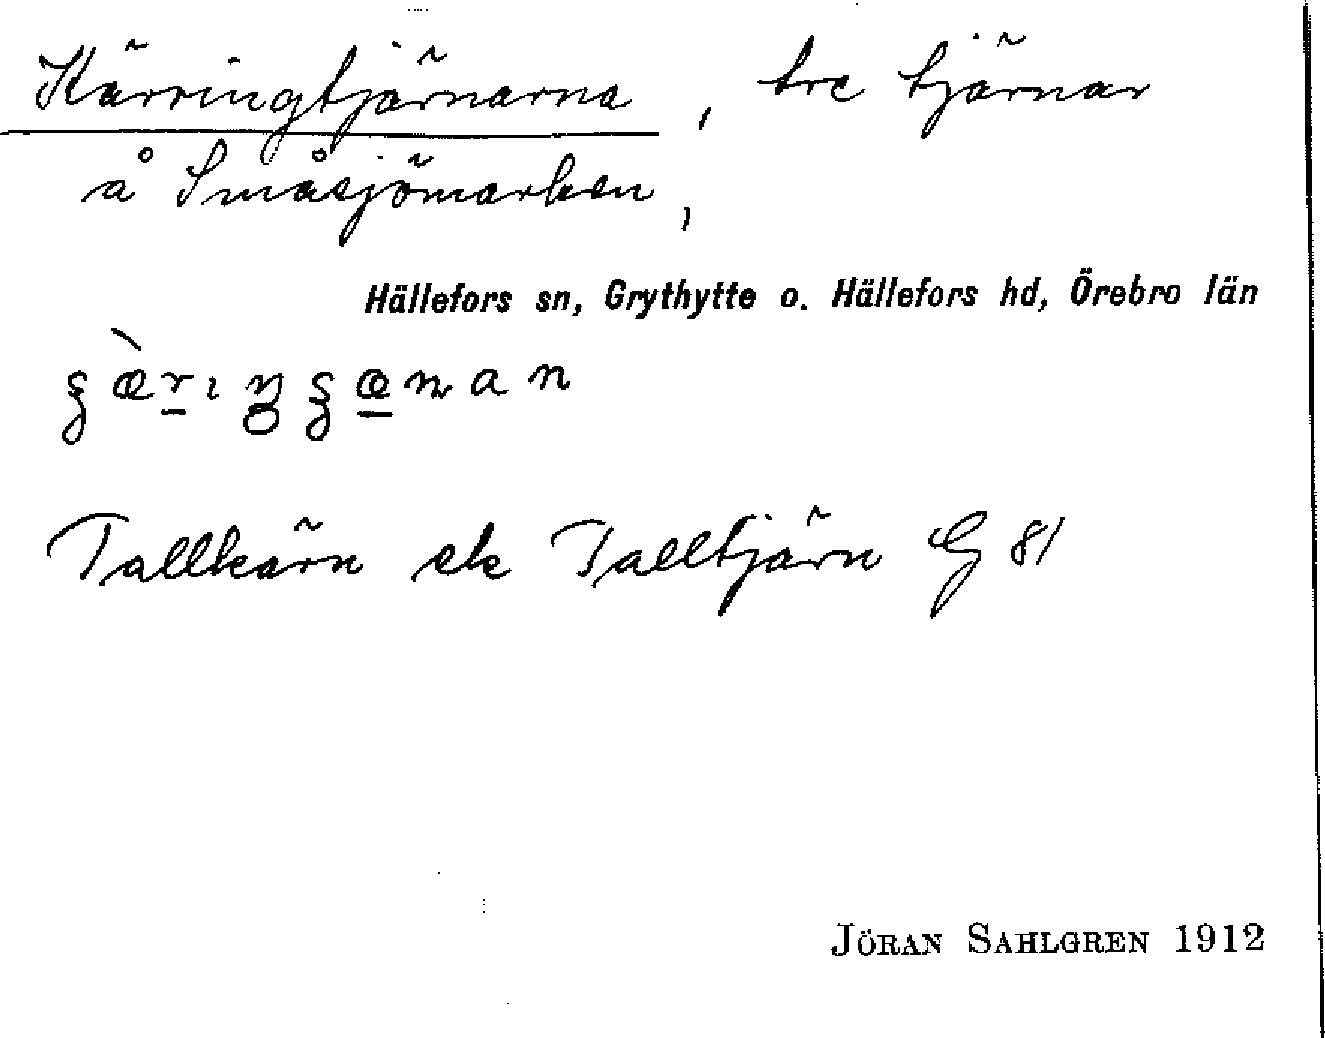 Kärringtjärnarna, tre tjärnar
å Småsjömarken,
Hällefors sn, Grythytte o. Hällefors hd, Örebro län
Tallkärn ek Talltjärn G 81
JÖRAN SAHLGREN 1912